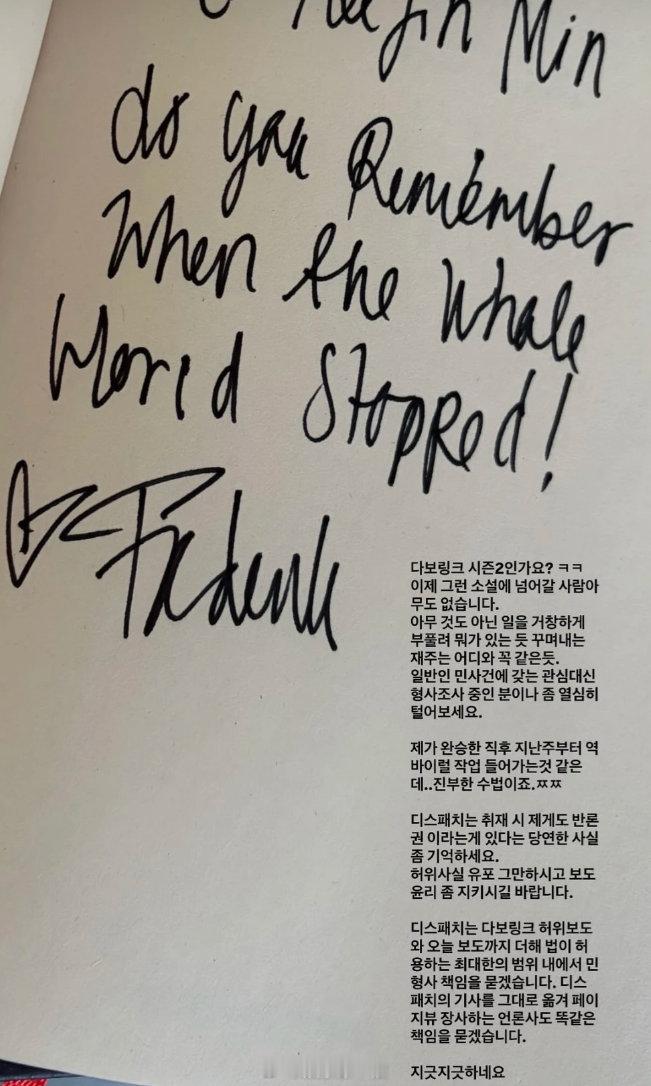 Min
do you Remember
When the Whole
World Stopped!
다보링크 시즌2인가요? ㅋㅋ
이제 그런 소설에 넘어갈 사람아
무도 없습니다.
아무 것도 아닌 일을 거창하게
부풀려 뭐가 있는 듯 꾸며내는
재주는 어디와 꼭 같은듯.
일반인 민사건에 갖는 관심대신
형사조사 중인 분이나 좀 열심히
털어보세요.
제가 완승한 직후 지난주부터 역
바이럴 작업 들어가는것 같은
데..진부한 수법이죠.ㅉㅉ
디스패치는 취재 시 제게도 반론
권 이라는게 있다는 당연한 사실
좀 기억하세요.
허위사실 유포 그만하시고 보도
윤리 좀 지키시길 바랍니다.
디스패치는 다보링크 허위보도
와 오늘 보도까지 더해 법이 허
용하는 최대한의 범위 내에서 민
형사 책임을 묻겠습니다. 디스
패치의 기사를 그대로 옮겨 페이
지뷰 장사하는 언론사도 똑같은
책임을 묻겠습니다.
지긋지긋하네요